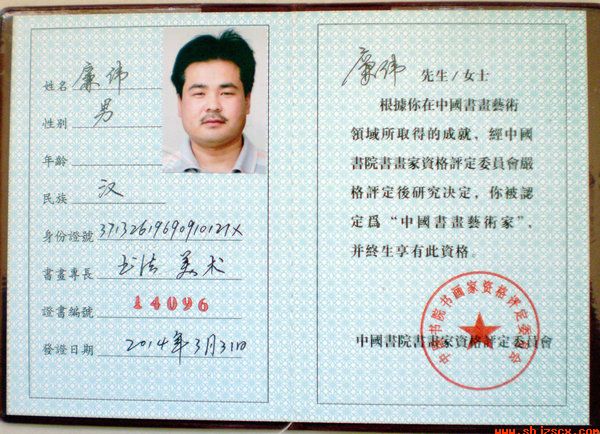 姓名 廉伟
性别 男
年齡
民族 汉
身份證號 37132619690910121X
書畫專長 书法 美术
證書編號 14096
發證日期 2014年3月31日
廉伟 先生/女士
根據你在中國書畫藝術
領域所取得的成就，經中國
書院書畫家資格評定委員會嚴
格評定後研究决定，你被認
定爲“中國書畫藝術家”，
并終生享有此資格。
中國書院書畫家資格評定委員會
中国书院书画家资格评定委员会
www.shizscx.com